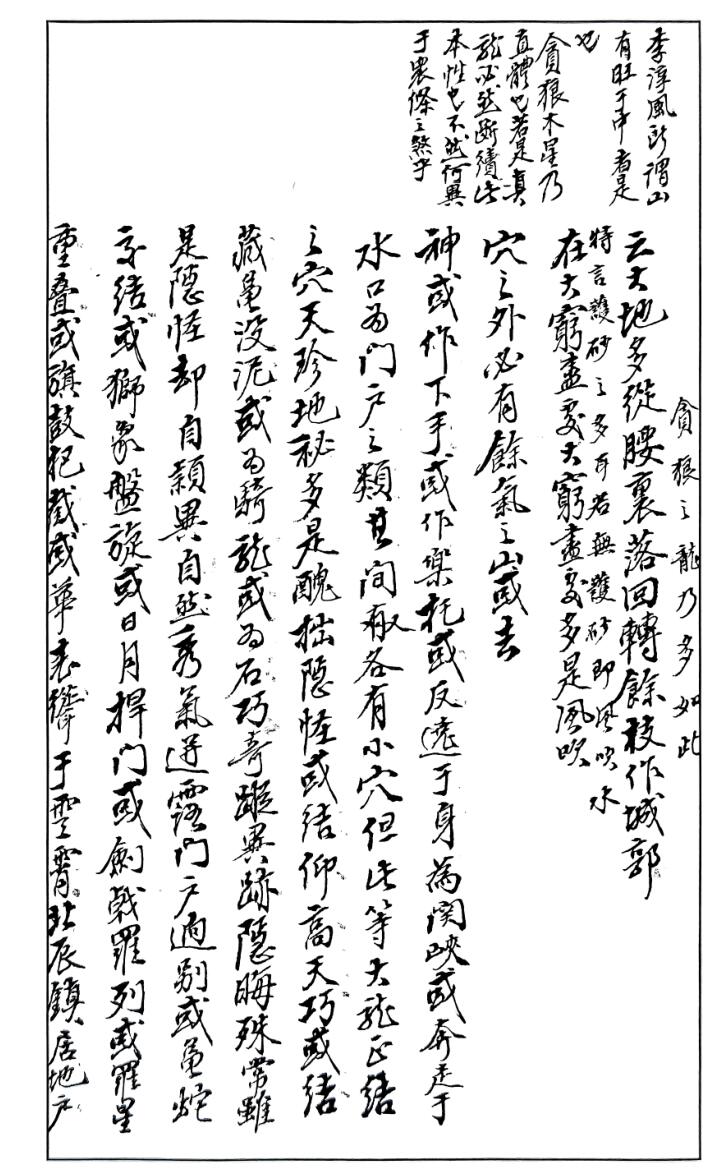 李淳風所謂山
有旺于中者是
也
貪狼木星乃
直體也若是真
龍必然斷續此
本性也不然何異
于裹絛之煞乎
貪狼之龍乃多如此
云大地多從腰裏落回轉餘枝作城郭
特言護砂之多耳若無護砂即風吹水
在大窮盡处大窮盡处多是風吹
穴之外必有餘氣之山或去
神或作下手或作樂托或反遶于身為関峡或奔走于
水口為門户之類其间敢各有小穴但此等大龍正結
之穴天珍地秘多是醜拙隐怪或结仰高天巧或结
藏黾没泥或為騎龍或為石巧奇蹤異跡隐晦殊常雖
是隐怪却自頴異自然秀氣迸露門户逈别或黾蛇
交结或獅象盤旋或日月捍門或劍戟羅列或羅星
重叠或旗鼓杷截或華表聳于雲霄北辰鎮居地户